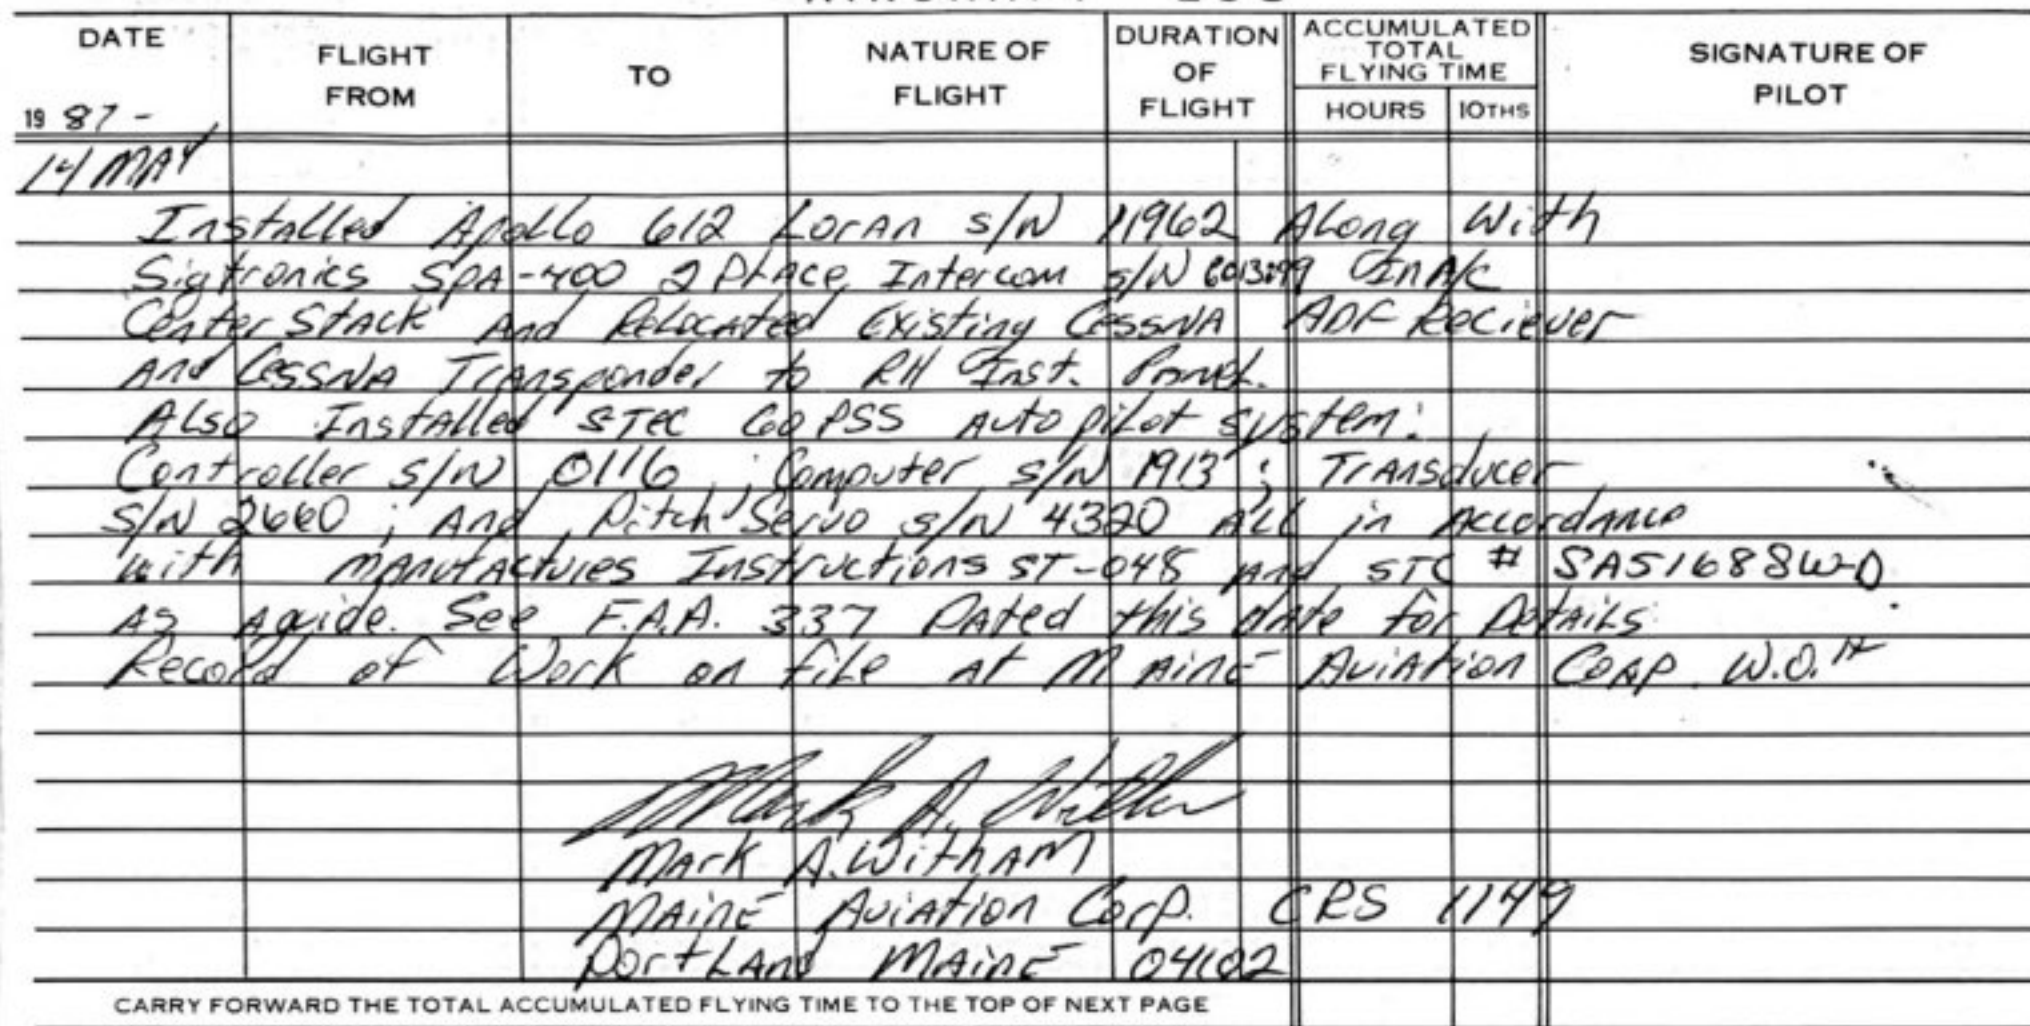 DATE
FLIGHT FROM
TO
NATURE OF FLIGHT
DURATION OF FLIGHT
ACCUMULATED TOTAL FLYING TIME
HOURS
10THS
SIGNATURE OF PILOT
19 87 -
14 MAY
Installed Apollo 612 Loran S/N 11962 Along With
Sigtronics SPA-400 2 Place Intercom S/N In A/C
Center Stack And Relocated Existing Cessna ADF Reciever
And Cessna Transponder to RH Inst. Pannel.
Also Installed STEC 60 PSS Auto pilot system:
Controller S/N 0116 ; Computer S/N 1913 ; Transducer
S/N 2660 ; And Pitch Servo S/N 4320 All in Accordance
with manufactures Instructions ST-048 and STC # SA5168SW-D
As Aguide. See F.A.A. 337 Dated this date for Details
Record of Work on file at Maine Aviation Corp. W.O.#
Mark A. Witham
Mark A. Witham
Maine Aviation Corp. CRS 1149
Portland Maine 04102
CARRY FORWARD THE TOTAL ACCUMULATED FLYING TIME TO THE TOP OF NEXT PAGE